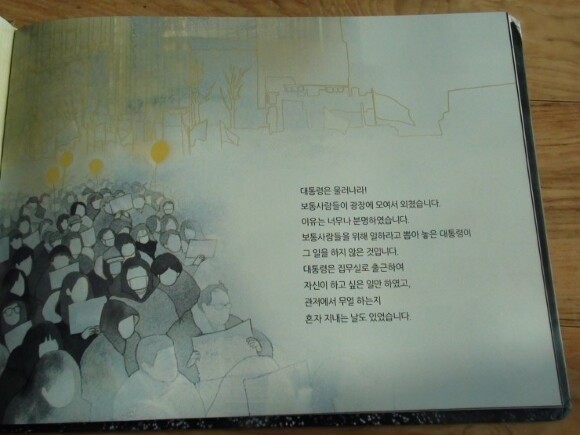 대통령은 물러나라!
보통사람들이 광장에 모여서 외쳤습니다.
이유는 너무나 분명하였습니다.
보통사람들을 위해 일하라고 뽑아 놓은 대통령이
그 일을 하지 않은 것입니다.
대통령은 집무실로 출근하여
자신이 하고 싶은 일만 하였고,
관저에서 무얼 하는지
혼자 지내는 날도 있었습니다.